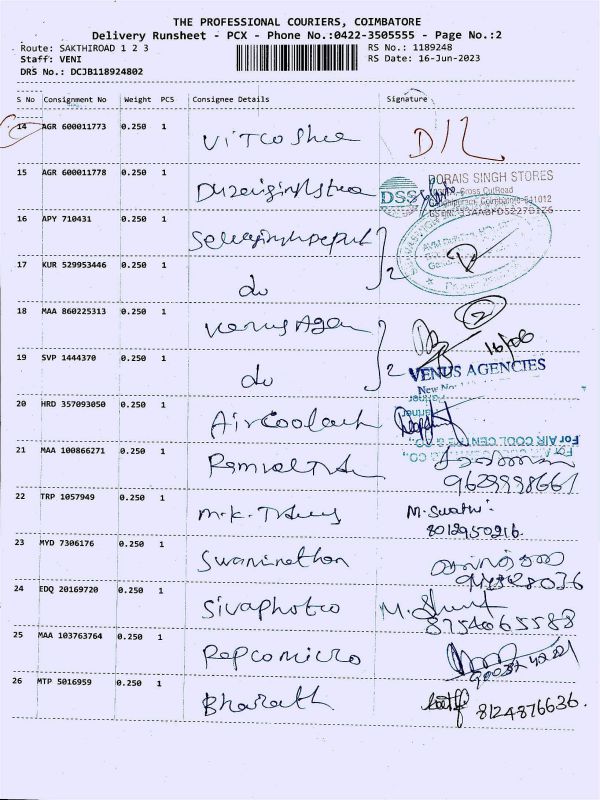 THE PROFESSIONAL COURIERS, COIMBATORE
Delivery Runsheet - PCX - Phone No.:0422-3505555 - Page No.:2
Route: SAKTHIROAD 1 2 3 RS No.: 1189248
Staff: VENI RS Date: 16-Jun-2023
DRS No.: DCJB118924802
S No Consignment No Weight PCS Consignee Details Signature
14 AGR 600011773 0.250 1 D/L
15 AGR 600011778 0.250 1 DSS DORAIS SINGH STORES
Cross CutRoad
16 APY 710431 0.250 1
17 KUR 529953446 0.250 1 do 2
18 MAA 860225313 0.250 1 Venus Agen 2
16/06
19 SVP 1444370 0.250 1 do 2 VENUS AGENCIES
20 HRD 357093050 0.250 1 Aircool
For AIR COOL CENTRE & CO.,
Partner
21 MAA 100866271 0.250 1
22 TRP 1057949 0.250 1 M.K. M. Swathi
8012950216.
23 MYD 7306176 0.250 1 Swaminathan
24 EDQ 20169720 0.250 1 Sivaphoto M.
8754065588
25 MAA 103763764 0.250 1 Repcomicro
26 MTP 5016959 0.250 1 Bharath 8124876636.